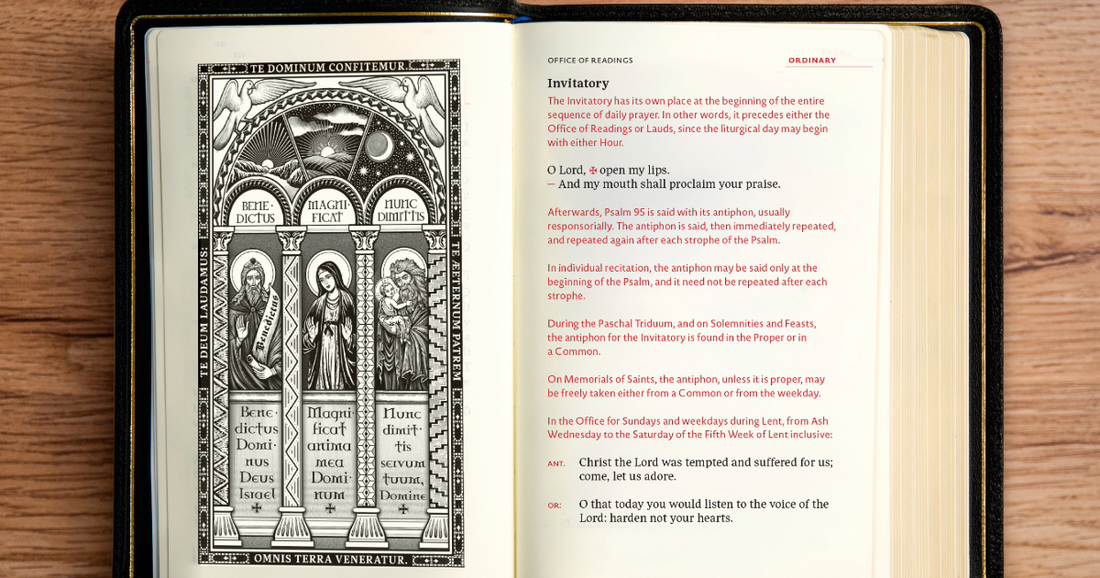 TE DOMINUM CONFITEMUR.
TE DEUM LAUDAMUS:
TE ÆTERNUM PATREM
BENE·
DICTUS
MAGNI·
FICAT
NUNC
DIMITTIS
Benedictus
Bene·
dictus
Domi·
nus
Deus
Israel
✠
Magni·
ficat
anima
mea
Domi·
num
✠
Nunc
dimit·
tis
servum
tuum,
Domine
✠
OMNIS TERRA VENERATUR.
OFFICE OF READINGS
ORDINARY
Invitatory
The Invitatory has its own place at the beginning of the entire
sequence of daily prayer. In other words, it precedes either the
Office of Readings or Lauds, since the liturgical day may begin
with either Hour.
O Lord, ✠ open my lips.
– And my mouth shall proclaim your praise.
Afterwards, Psalm 95 is said with its antiphon, usually
responsorially. The antiphon is said, then immediately repeated,
and repeated again after each strophe of the Psalm.
In individual recitation, the antiphon may be said only at the
beginning of the Psalm, and it need not be repeated after each
strophe.
During the Paschal Triduum, and on Solemnities and Feasts,
the antiphon for the Invitatory is found in the Proper or in
a Common.
On Memorials of Saints, the antiphon, unless it is proper, may
be freely taken either from a Common or from the weekday.
In the Office for Sundays and weekdays during Lent, from Ash
Wednesday to the Saturday of the Fifth Week of Lent inclusive:
ANT. Christ the Lord was tempted and suffered for us;
come, let us adore.
OR: O that today you would listen to the voice of the
Lord: harden not your hearts.